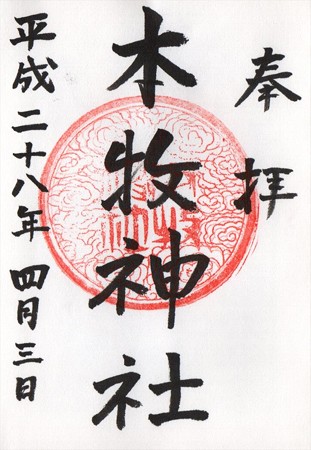 奉拝
本牧神社
平成二十八年四月三日